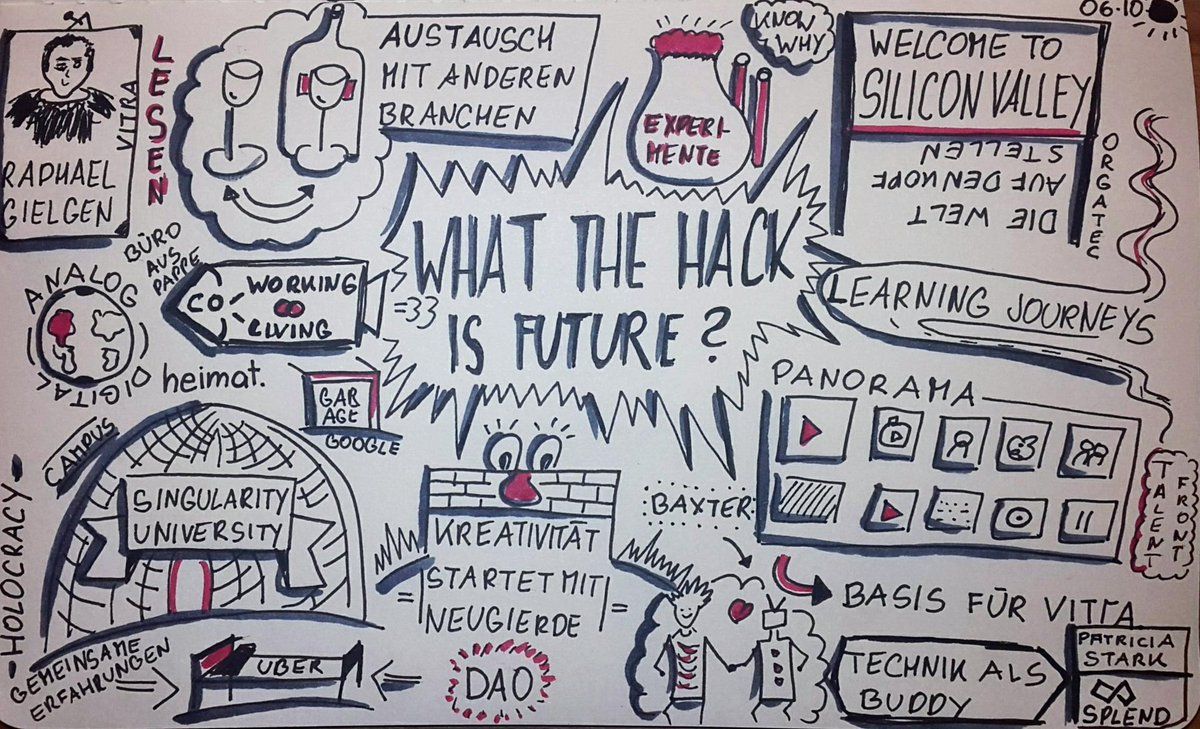 06.10
RAPHAEL
GIELGEN
VITRA
LESEN
AUSTAUSCH
MIT ANDEREN
BRANCHEN
EXPERI-
MENTE
KNOW
WHY
WELCOME TO
SILICON VALLEY
DIE WELT
AUF DEN KOPF
STELLEN
ORGATEC
WHAT THE HACK
IS FUTURE?
BÜRO
AUS
PAPPE
CO
WORKING
LIVING
=33
ANALOG
DIGITAL
heimat.
GAB
AGE
GOOGLE
LEARNING JOURNEYS
PANORAMA
TALENT
FRONT
CAMPUS
SINGULARITY
UNIVERSITY
-HOLOCRACY-
KREATIVITÄT
=STARTET MIT
NEUGIERDE=
BAXTER
BASIS FÜR VITRA
GEMEINSAME
ERFAHRUNGEN
UBER
DAO
TECHNIK ALS
BUDDY
PATRICIA
STARK
SPLEND